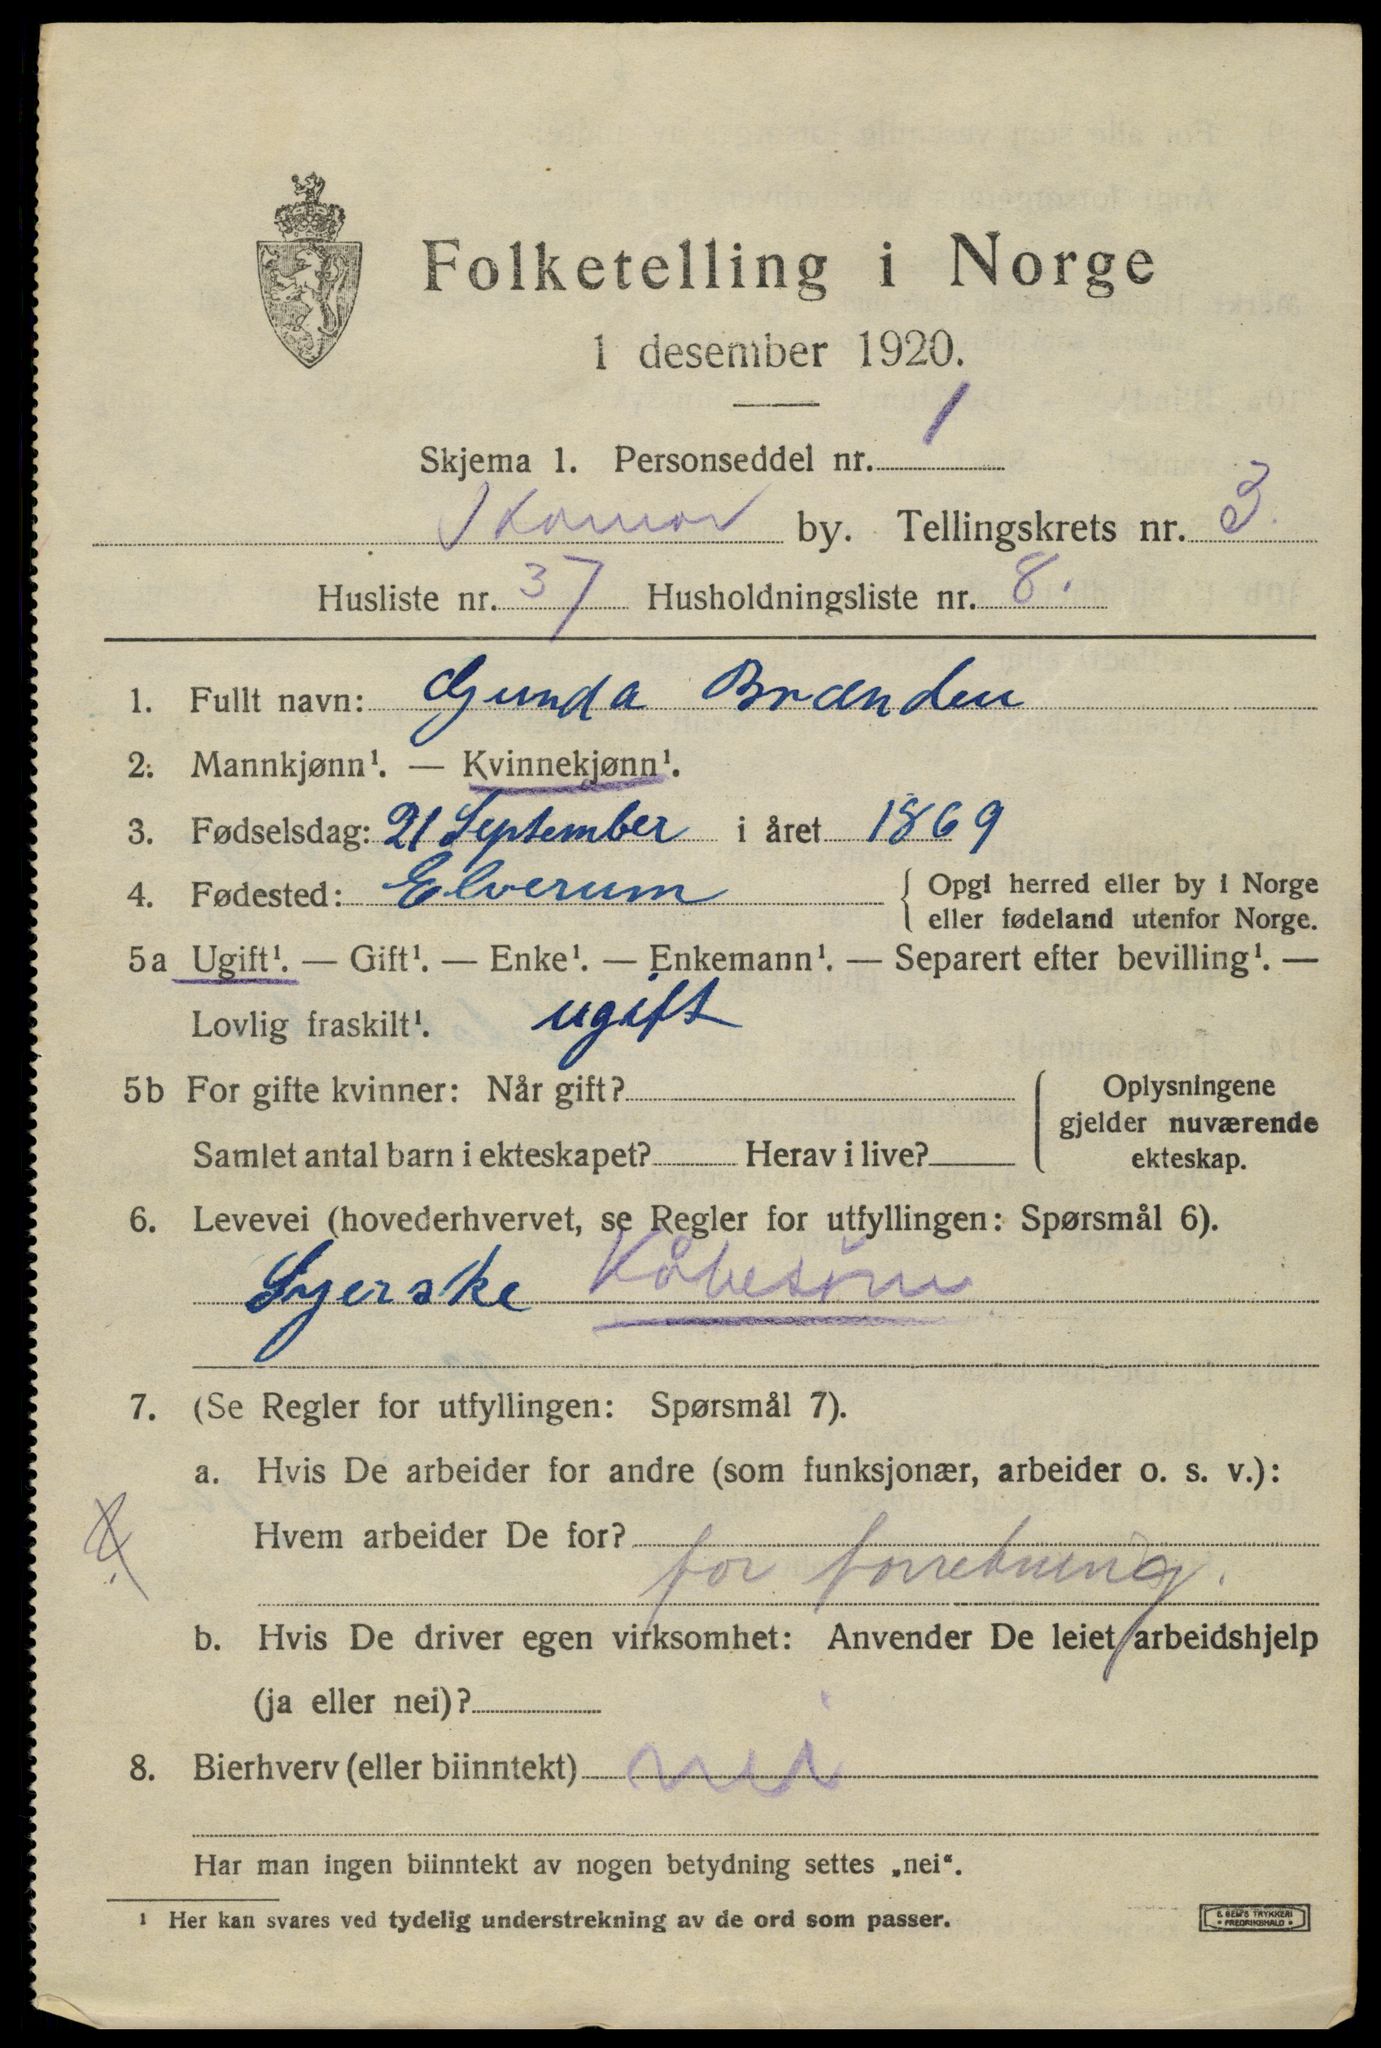 Folketelling i Norge
1 desember 1920.
Skjema 1. Personseddel nr. 1
Hamar by. Tellingskrets nr. 3.
Husliste nr. 37 Husholdningsliste nr. 8.
1. Fullt navn: Gunda Brænden
2. Mannkjønn¹. — Kvinnekjønn¹.
3. Fødselsdag: 21 September i året 1869
4. Fødested: Elverum { Opgi herred eller by i Norge
eller fødeland utenfor Norge.
5a Ugift¹. — Gift¹. — Enke¹. — Enkemann¹. — Separert efter bevilling¹. —
Lovlig fraskilt¹. ugift
5b For gifte kvinner: Når gift? { Oplysningene
gjelder nuværende
Samlet antal barn i ekteskapet? Herav i live? ekteskap.
6. Levevei (hovederhvervet, se Regler for utfyllingen: Spørsmål 6).
Syerske Kåbesöm
7. (Se Regler for utfyllingen: Spørsmål 7).
a. Hvis De arbeider for andre (som funksjonær, arbeider o. s. v.):
Hvem arbeider De for?
for forretning.
b. Hvis De driver egen virksomhet: Anvender De leiet arbeidshjelp
(ja eller nei)?
8. Bierhverv (eller biinntekt) nei
Har man ingen biinntekt av nogen betydning settes „nei“.
¹ Her kan svares ved tydelig understrekning av de ord som passer.
E SEM'S TRYKKERI
• FREDRIKSHALD •